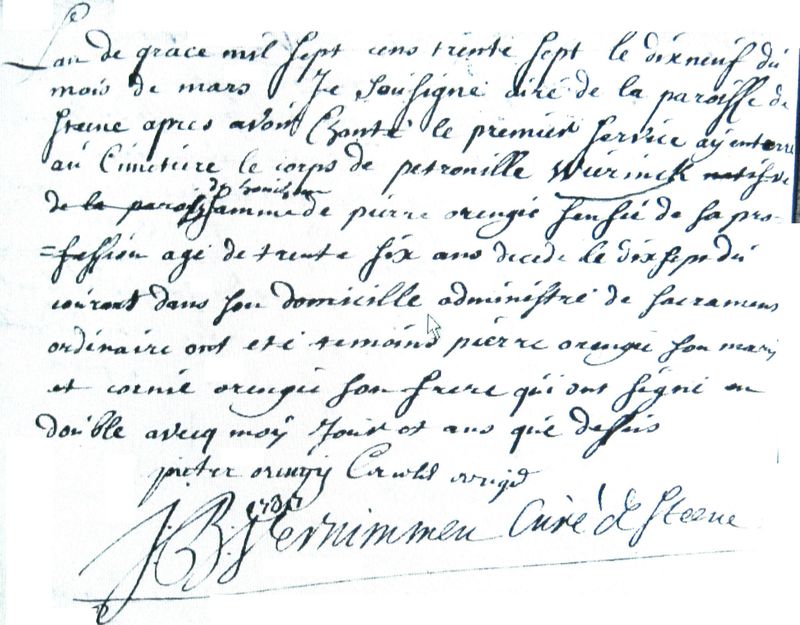 L'an de grace mil sept cens trente sept le dix neuf du
mois de mars Je soussigné curé de la paroisse de
steene apres avoir chanté le premier service ay enterré
au Cimetiere le corps de petronille Wurinck native
de la paroisse
famme de pierre orengie sensié de sa pro-
=fession agé de trente six ans decedé le dix sept du
courant dans son domicille administré de sacramens
ordinaire ont eté temoins pierre orengie son mary
et cornil orengie son frere qui ont signé en
double avecq moÿ Jour et ans que dessus
pieter orengie Cornelis orengie
1737
J: B: Vernimmen Curé de steene